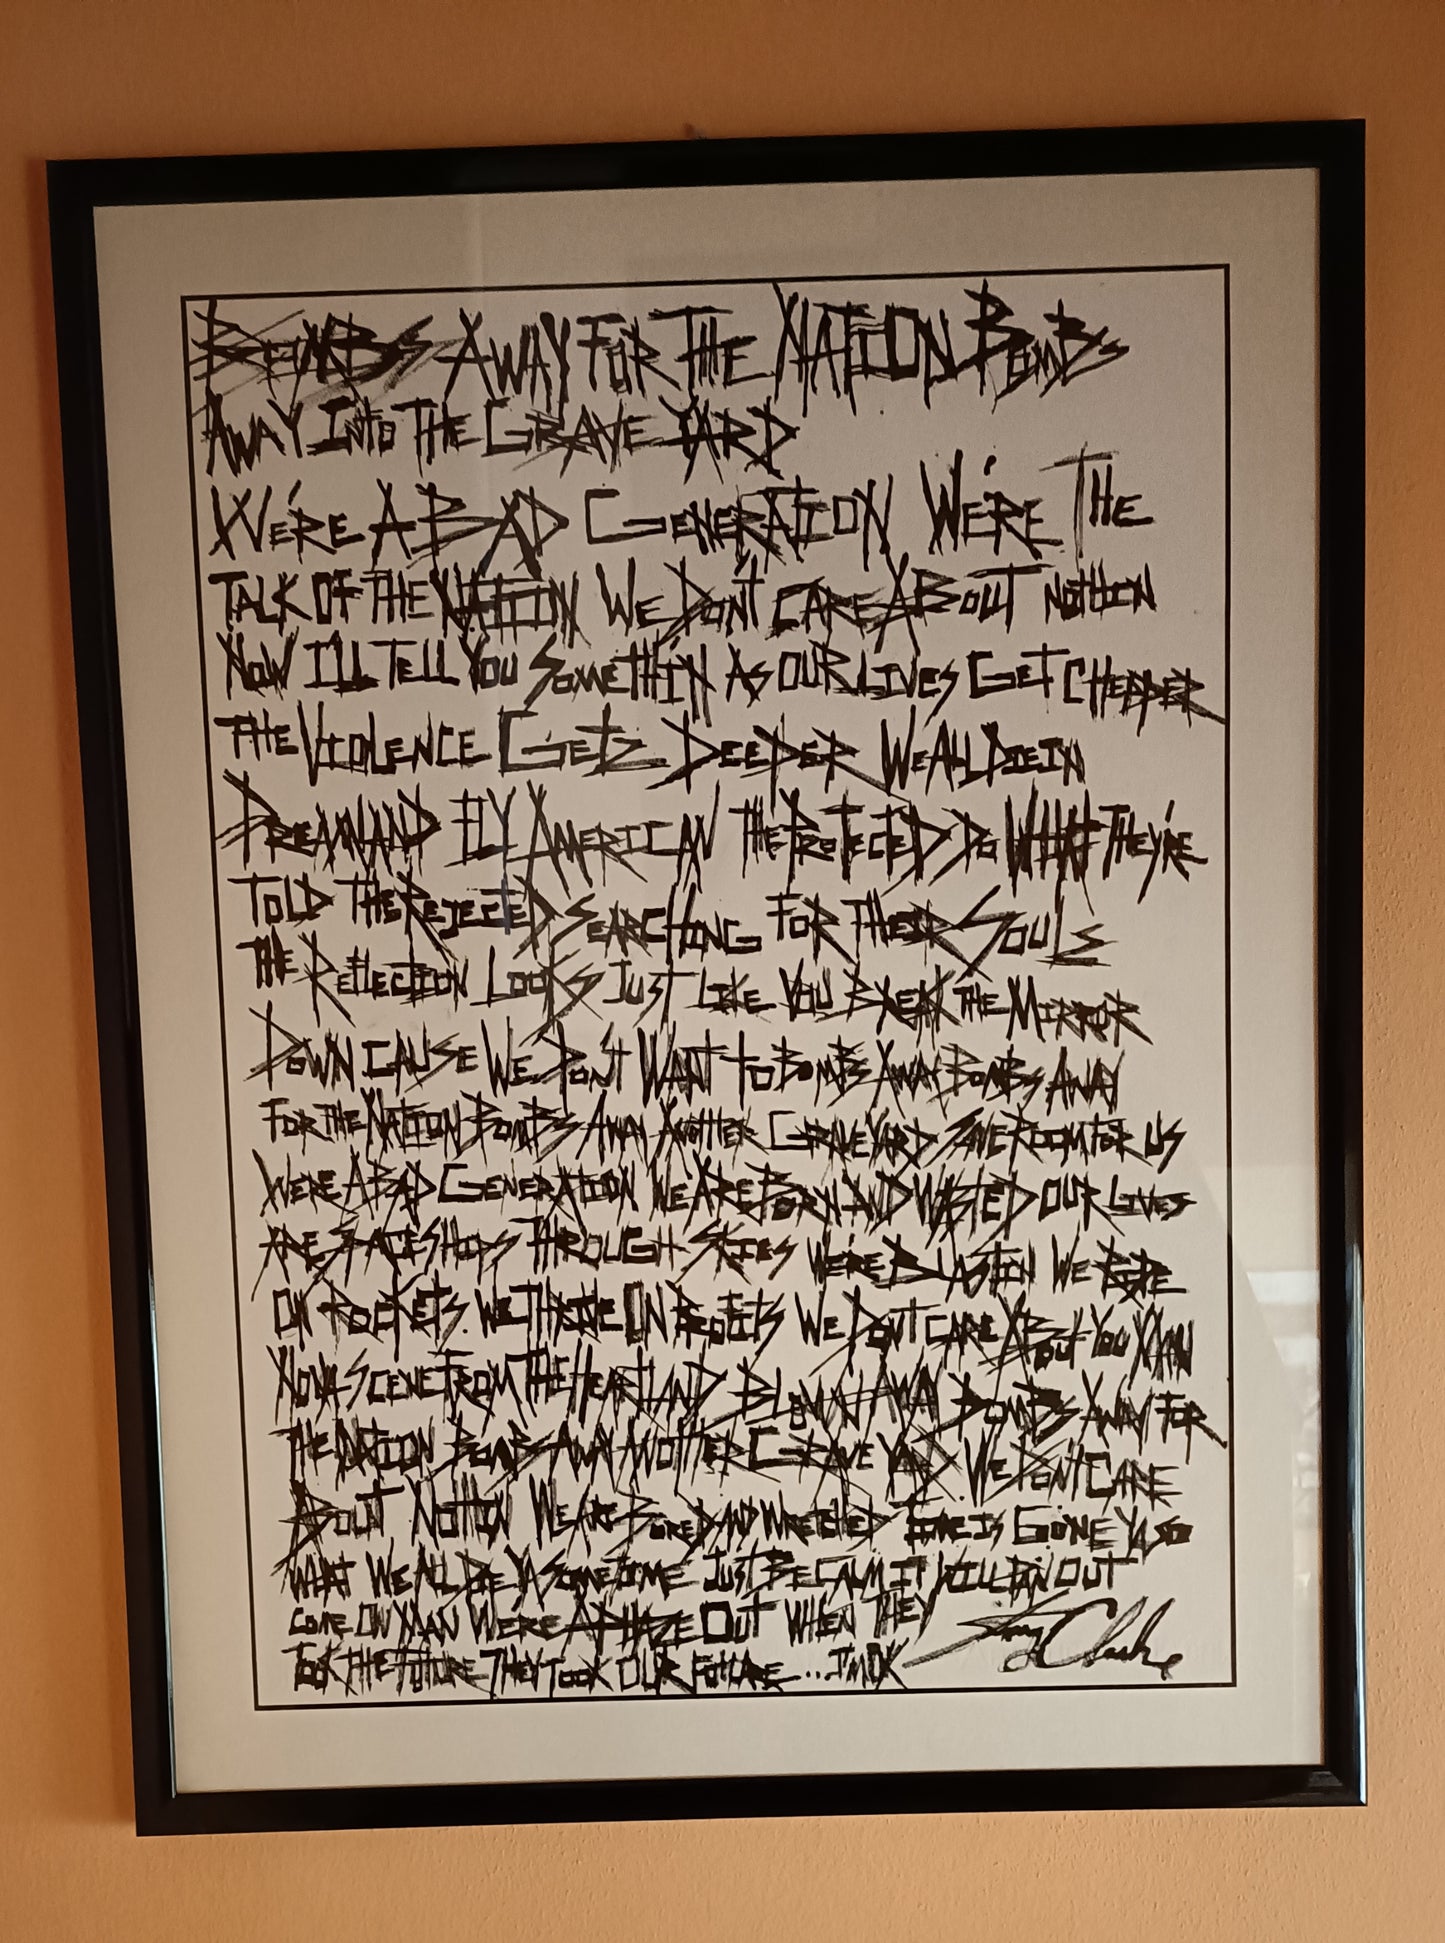 BOMBS AWAY FOR THE NATION BOMBS
AWAY INTO THE GRAVE YARD
WE'RE A BAD GENERATION WE'RE THE
TALK OF THE NATION WE DON'T CARE ABOUT NOTHIN
NOW I'LL TELL YOU SOMETHIN AS OUR LIVES GET CHEPPER
THE VIOLENCE GETZ DEEPER WE ALL DIE IN
DREAMLAND FLY AMERICAN THE PROTECTED DO WHAT THEY'RE
TOLD THE REJECTED SEARCHING FOR THEIR SOULS
THE REFLECTION LOOKS JUST LIKE YOU BREAK THE MIRROR
DOWN CAUSE WE DON'T WANT TO BOMBS AWAY BOMBS AWAY
FOR THE NATION BOMBS AWAY ANOTHER GRAVE YARD SAVE ROOM FOR US
WE'RE A BAD GENERATION WE ARE BORN AND WASTED OUR LIVES
ARE SPACESHIPS THROUGH SKIES WE'RE BLASTIN WE RIDE
ON ROCKETS. WE THRIVE ON PROFITS WE DON'T CARE ABOUT YOU MAN
NOW A SCENE FROM THE HEARTLAND BLOWN AWAY BOMBS AWAY FOR
THE NATION BOMBS AWAY ANOTHER GRAVE YARD. WE DON'T CARE
ABOUT NOTHIN WE ARE BORED AND WRETCHED TIME IS GONE YA SO
WHAT WE ALL DIE YA SOMETIME JUST BE CALM IT WILL PAN OUT
COME ON MAN WERE A PHAZE OUT WHEN THEY
TOOK THE FUTURE THEY TOOK OUR ... I'M OK